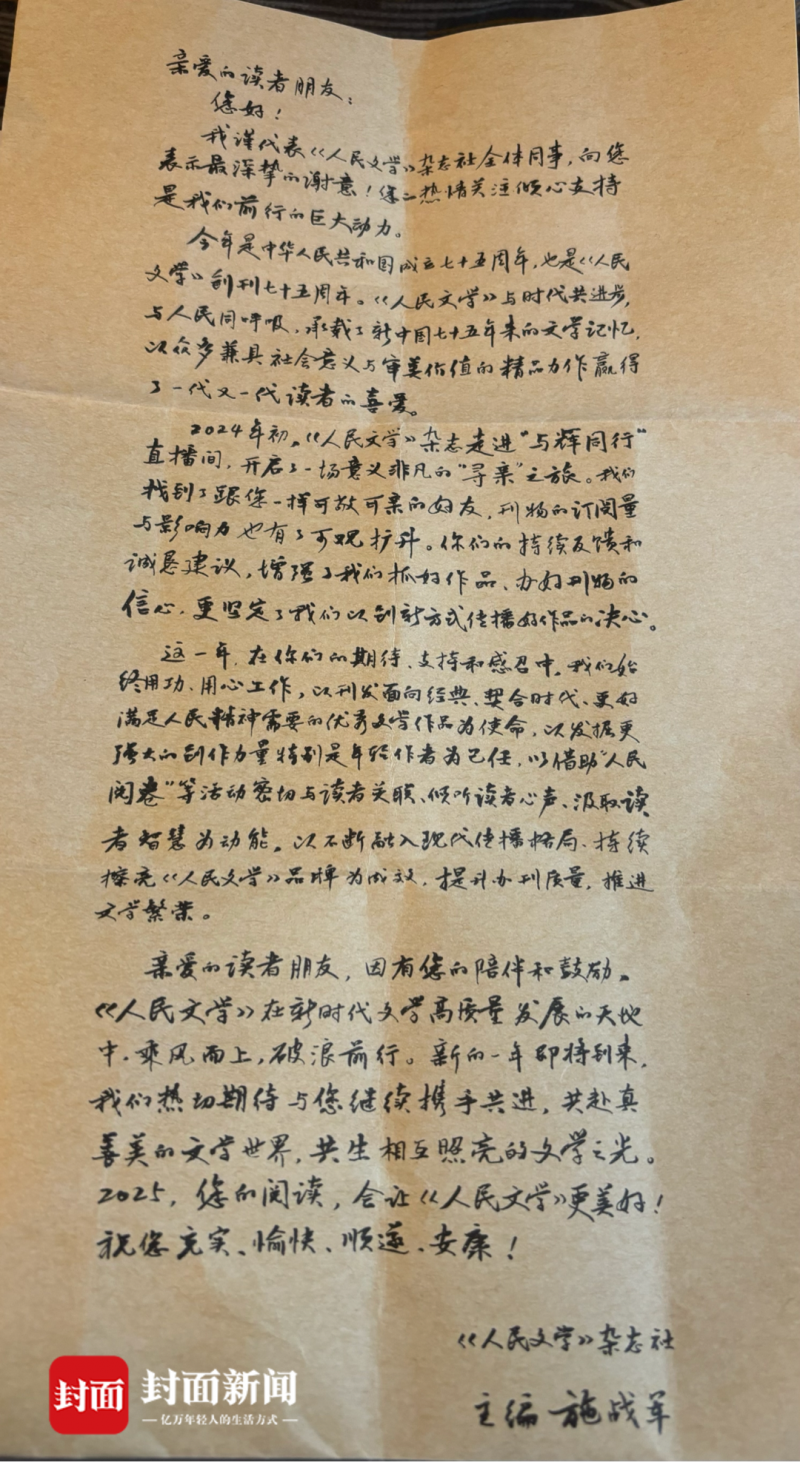 亲爱的读者朋友：
您好！
我谨代表《人民文学》杂志社全体同事，向您
表示最深挚的谢意！您的热情关注倾心支持
是我们前行的巨大动力。
今年是中华人民共和国成立七十五周年，也是《人民
文学》创刊七十五周年。《人民文学》与时代共进步，
与人民同呼吸，承载了新中国七十五年来的文学记忆，
以众多兼具社会意义与审美价值的精品力作赢得
了一代又一代读者的喜爱。
2024年初，《人民文学》杂志走进“与辉同行”
直播间，开启了一场意义非凡的“寻亲”之旅。我们
找到了跟您一样可敬可亲的好友，刊物的订阅量
与影响力也有了可观扩升。你们的持续反馈和
诚恳建议，增强了我们抓好作品、办好刊物的
信心，更坚定了我们以创新方式传播好作品的决心。
这一年，在你们的期待、支持和感召中，我们始
终用功、用心工作，以刊发面向经典、契合时代、更好
满足人民精神需要的优秀文学作品为使命，以发掘更
强大的创作力量特别是年轻作者为己任，以借助“人民
阅卷”等活动密切与读者关联、倾听读者心声、汲取读
者智慧为动能，以不断融入现代传播格局、持续
擦亮《人民文学》品牌为成效，提升办刊质量，推进
文学繁荣。
亲爱的读者朋友，因有您的陪伴和鼓励，
《人民文学》在新时代文学高质量发展的天地
中，乘风而上，破浪前行。新的一年即将到来，
我们热切期待与您继续携手共进，共赴真
善美的文学世界，共生相互照亮的文学之光。
2025，您的阅读，会让《人民文学》更美好！
祝您充实、愉快、顺遂、安康！
《人民文学》杂志社
主编 施战军
封面 封面新闻
亿万年轻人的生活方式